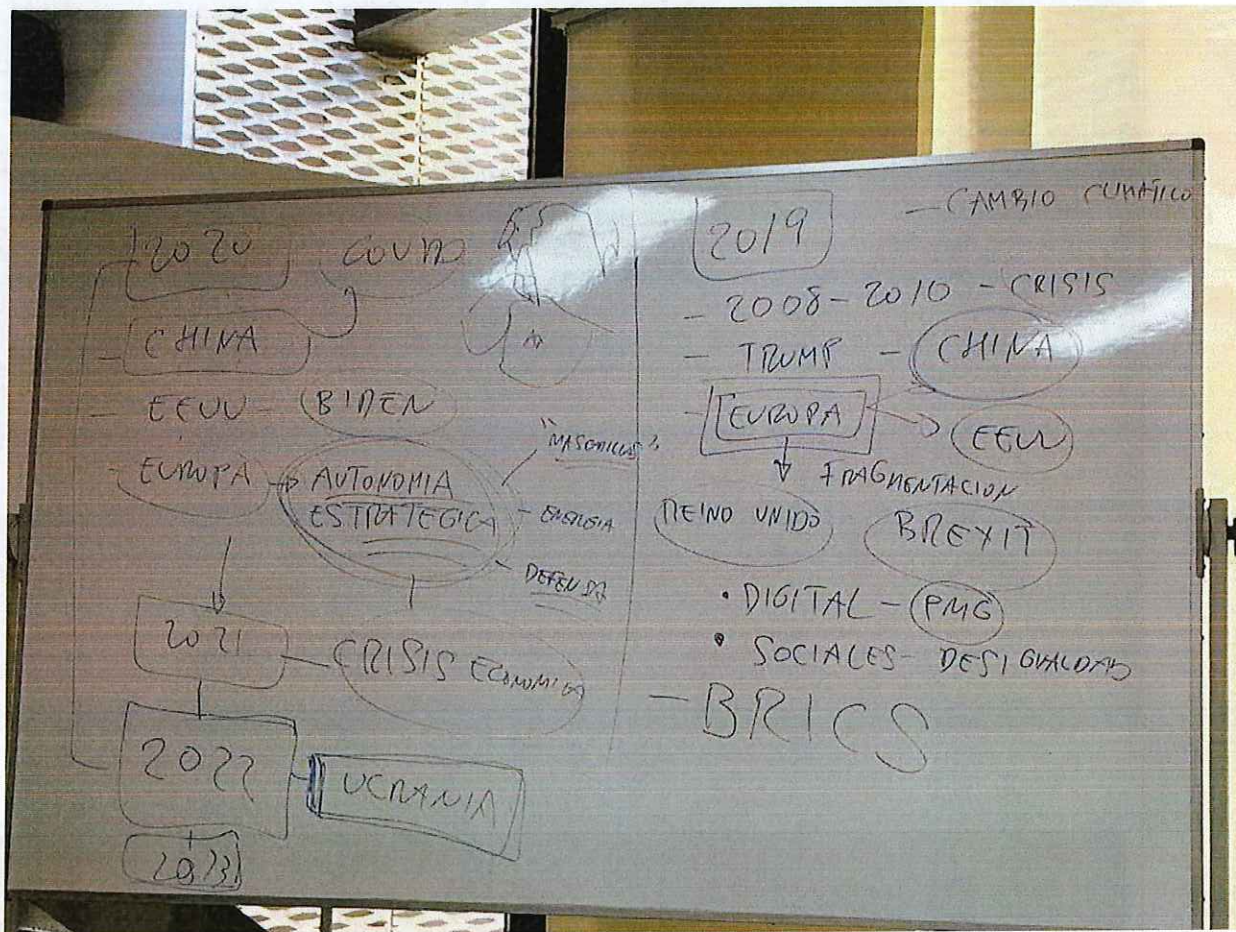 2020 COVID
- CHINA
- EEUU - BIDEN
- EUROPA → AUTONOMIA ESTRATEGICA
"MASCARILLAS"
- ENERGIA
- DEFENSA
2021 - CRISIS ECONOMICA
2022 - UCRANIA
2023
2019
- CAMBIO CLIMÁTICO
- 2008-2010 - CRISIS
- TRUMP - CHINA
- EUROPA → EEUU
FRAGMENTACION
REINO UNIDO BREXIT
• DIGITAL - PMG
• SOCIALES - DESIGUALDAD
- BRICS